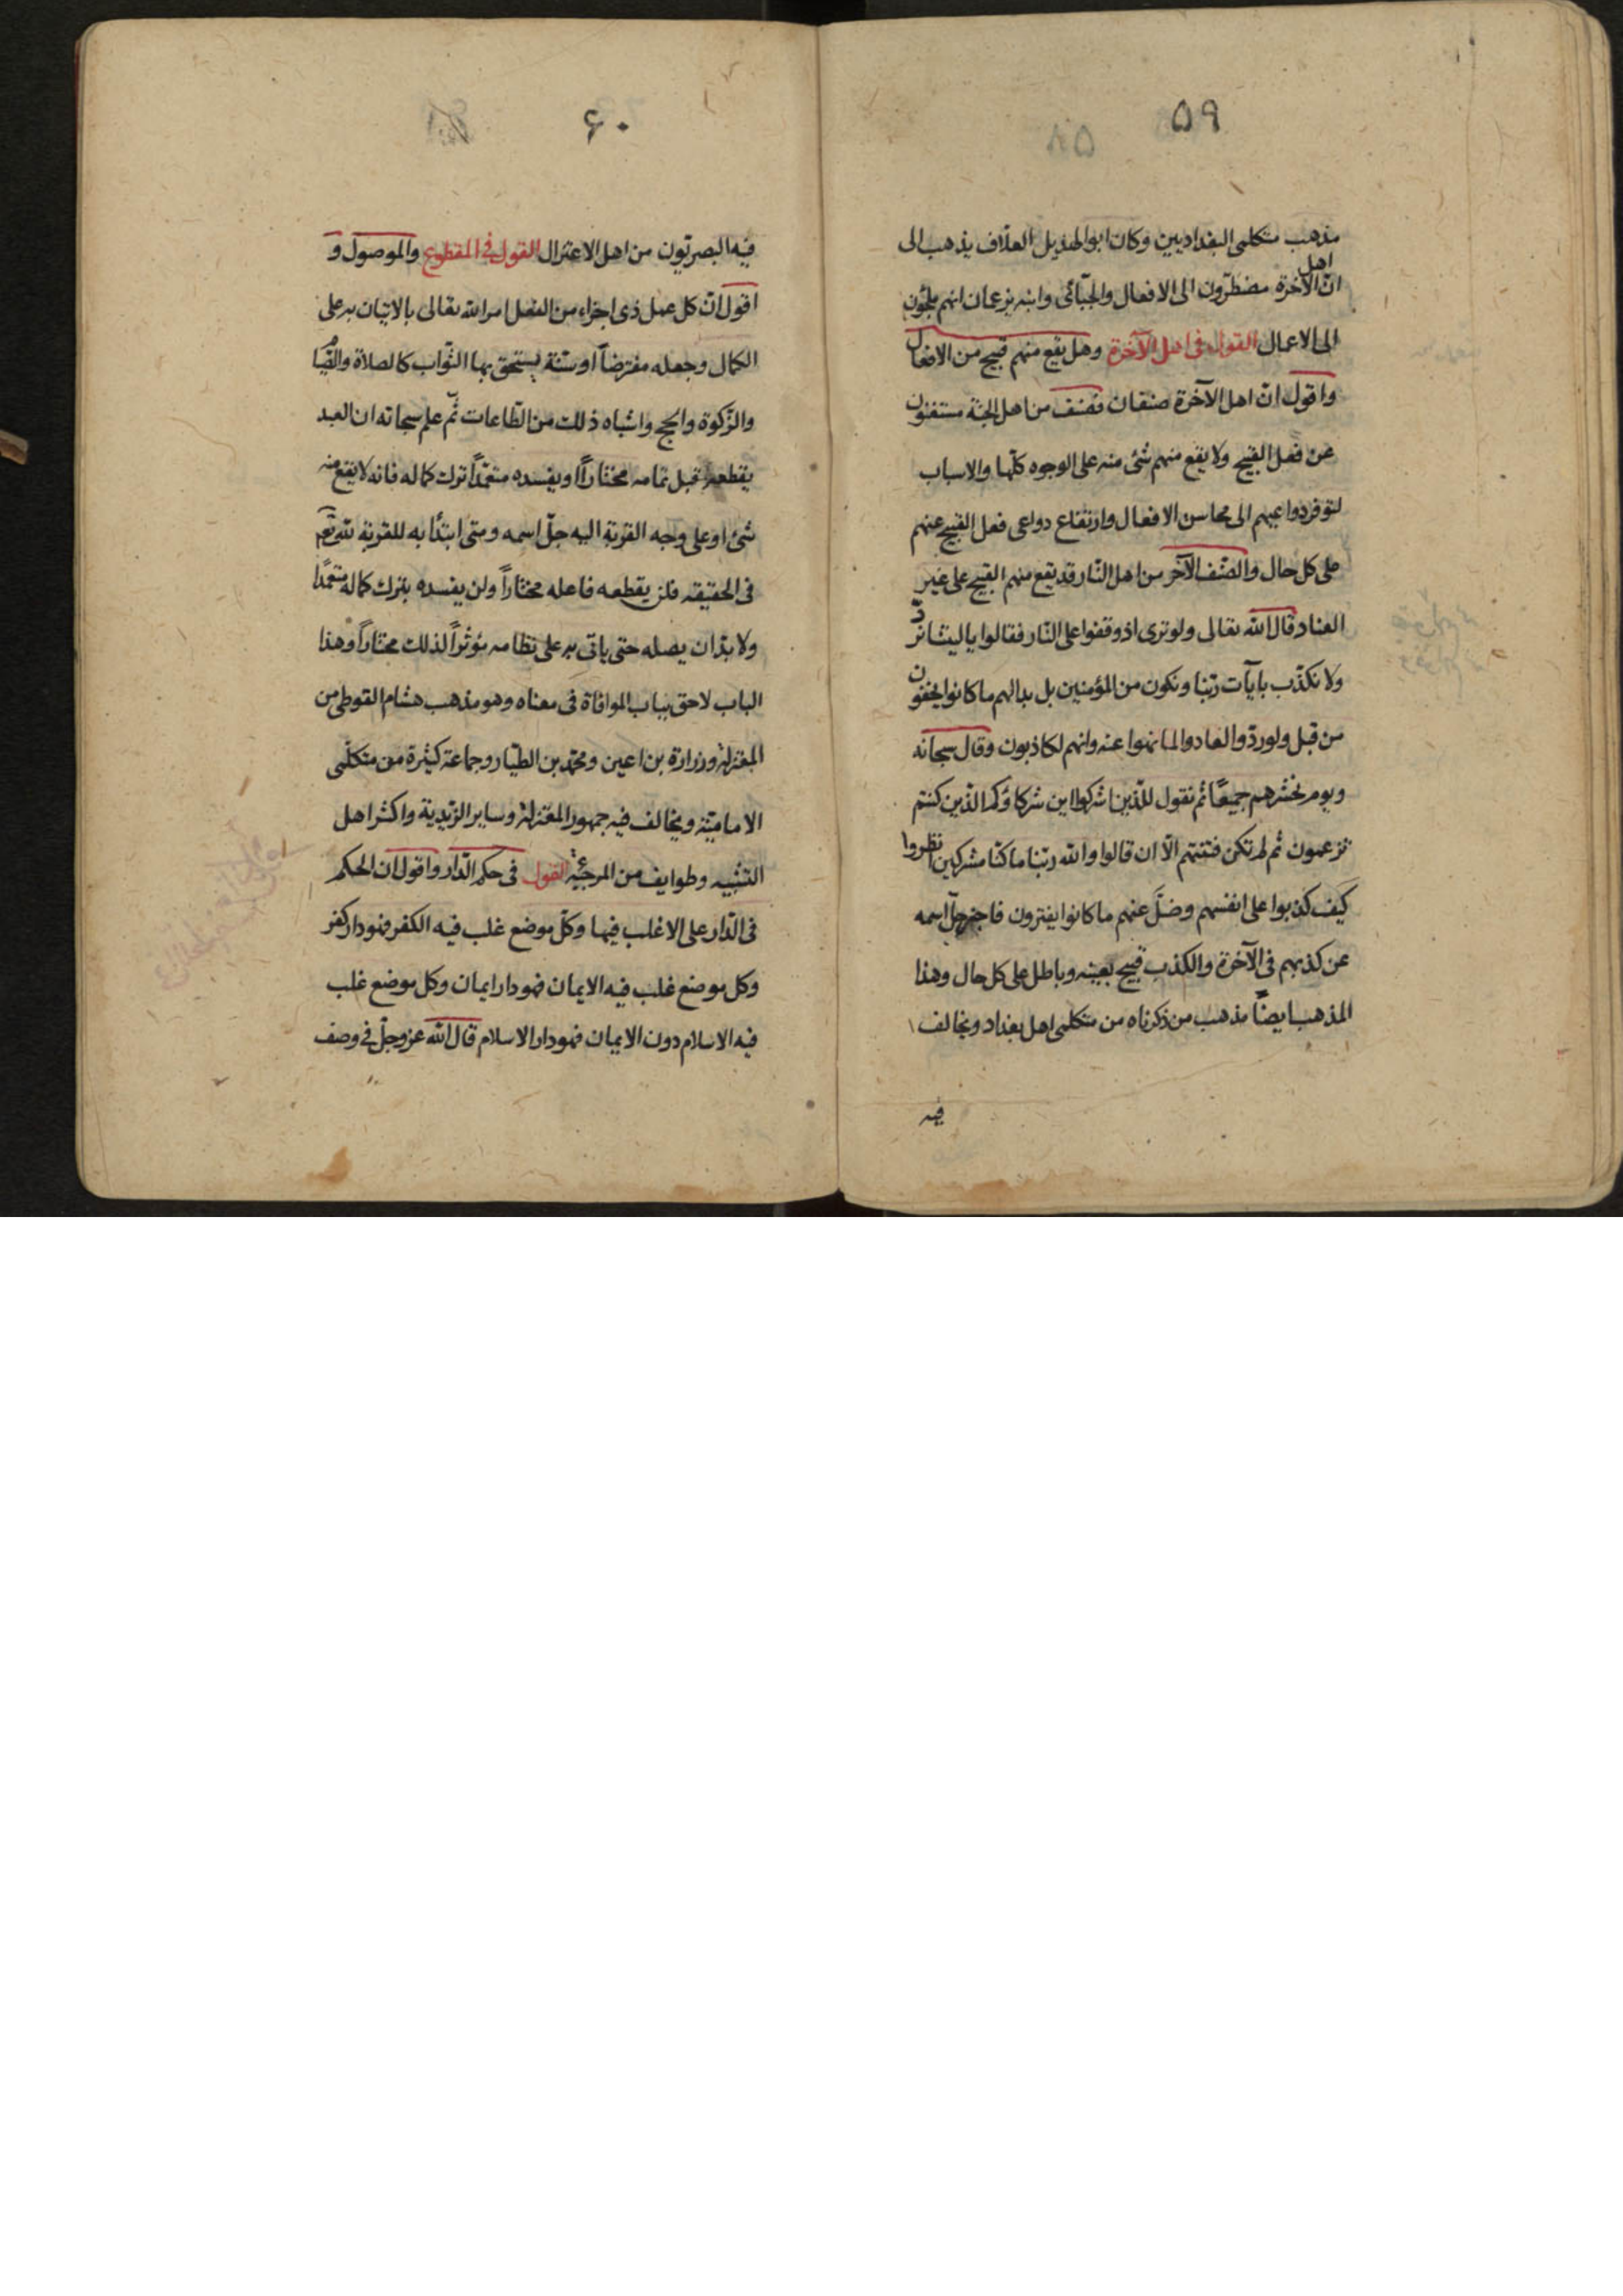 ٥٩
مذهب متكلمى البغداديين وكان ابو الهذيل العلّاف يذهب الى
انّ اهل الآخرة مضطرّون الى الافعال والجبّائى وابنه يزعمان انهم ملجئون
الى الاعمال القول فى اهل الآخرة وهل يقع منهم قبيح من الافعال
واقول انّ اهل الآخرة صنفان فصنف من اهل الجنة مستغنون
عن فعل القبيح ولا يقع منهم شئ منه على الوجوه كلّها والاسباب
لتوفر دواعيهم الى محاسن الافعال وارتفاع دواعى فعل القبيح عنهم
على كل حال والصّنف الآخر من اهل النّار قد يقع منهم القبيح على غير
العناد قال الله تعالى ولو ترى اذ وقفوا على النّار فقالوا يا ليتنا نردّ
ولا نكذّب بايآت ربّنا ونكون من المؤمنين بل بدا لهم ما كانوا يخفون
من قبل ولو ردّوا لعادوا لما نهوا عنه وانهم لكاذبون وقال سبحانه
ويوم نحشرهم جميعًا ثم نقول للذّين اشركوا اين شركاؤكم الذّين كنتم
تزعمون ثم لم تكن فتنتهم الّا ان قالوا والله ربّنا ما كنّا مشركين انظروا
كَيف كذبوا على انفسهم وضلّ عنهم ما كانوا يفترون فاخبر جلّ اسمه
عن كذبهم فى الآخرة والكذب قبيح بعينه وباطل على كل حال وهذا
المذهب ايضاً مذهب من ذكرناه من متكلمى اهل بغداد ويخالف
فيه
۶٠
فيه البصريّون من اهل الاعتزال القول فى المقطوع والموصول و
اقول انّ كل عمل ذى اجزاء من الفعل امر الله تعالى بالاتيان به على
الكمال وجعله مفترضاً او سنّة يستحق بها الثّواب كالصلاة والصّيام
والزّكوة والحج واشباه ذلك من الطّاعات ثمّ علم سبحانه ان العبد
يقطعه قبل تمامه مختاراً او يفسده متعمّداً ترك كماله فانه لا يقع منه
شئ او على وجه القربة اليه جلّ اسمه ومتى ابتدأ به للقربة لله تعم
فى الحقيقه فلن يقطعه فاعله مختاراً ولن يفسده بترك كماله متعمدًا
ولا بدّ ان يصله حتى ياتى به على نظامه مؤثراً لذلك مختاراً وهذا
الباب لاحق بباب الموافاة فى معناه وهو مذهب هشام الفوطى من
المعتزلة وزرارة بن اعين ومحمّد بن الطيّار وجماعة كثيرة من متكلّمى
الاماميّة ويخالف فيه جمهور المعتزلة وساير الزّيدية واكثر اهل
التشبيه وطوايف من المرجئة القول فى حكم الدّار واقول ان الحكم
فى الدّار على الاغلب فيها وكلّ موضع غلب فيه الكفر فهو دار كفر
وكل موضع غلب فيه الايمان فهو دار ايمان وكل موضع غلب
فيه الاسلام دون الايمان فهو دار الاسلام قال الله عز وجلّ فى وصف